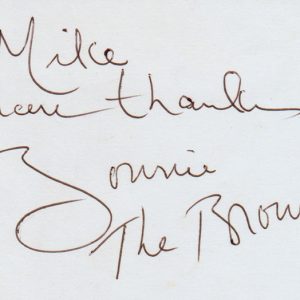 Mike
thanks
Bonnie
The Brow